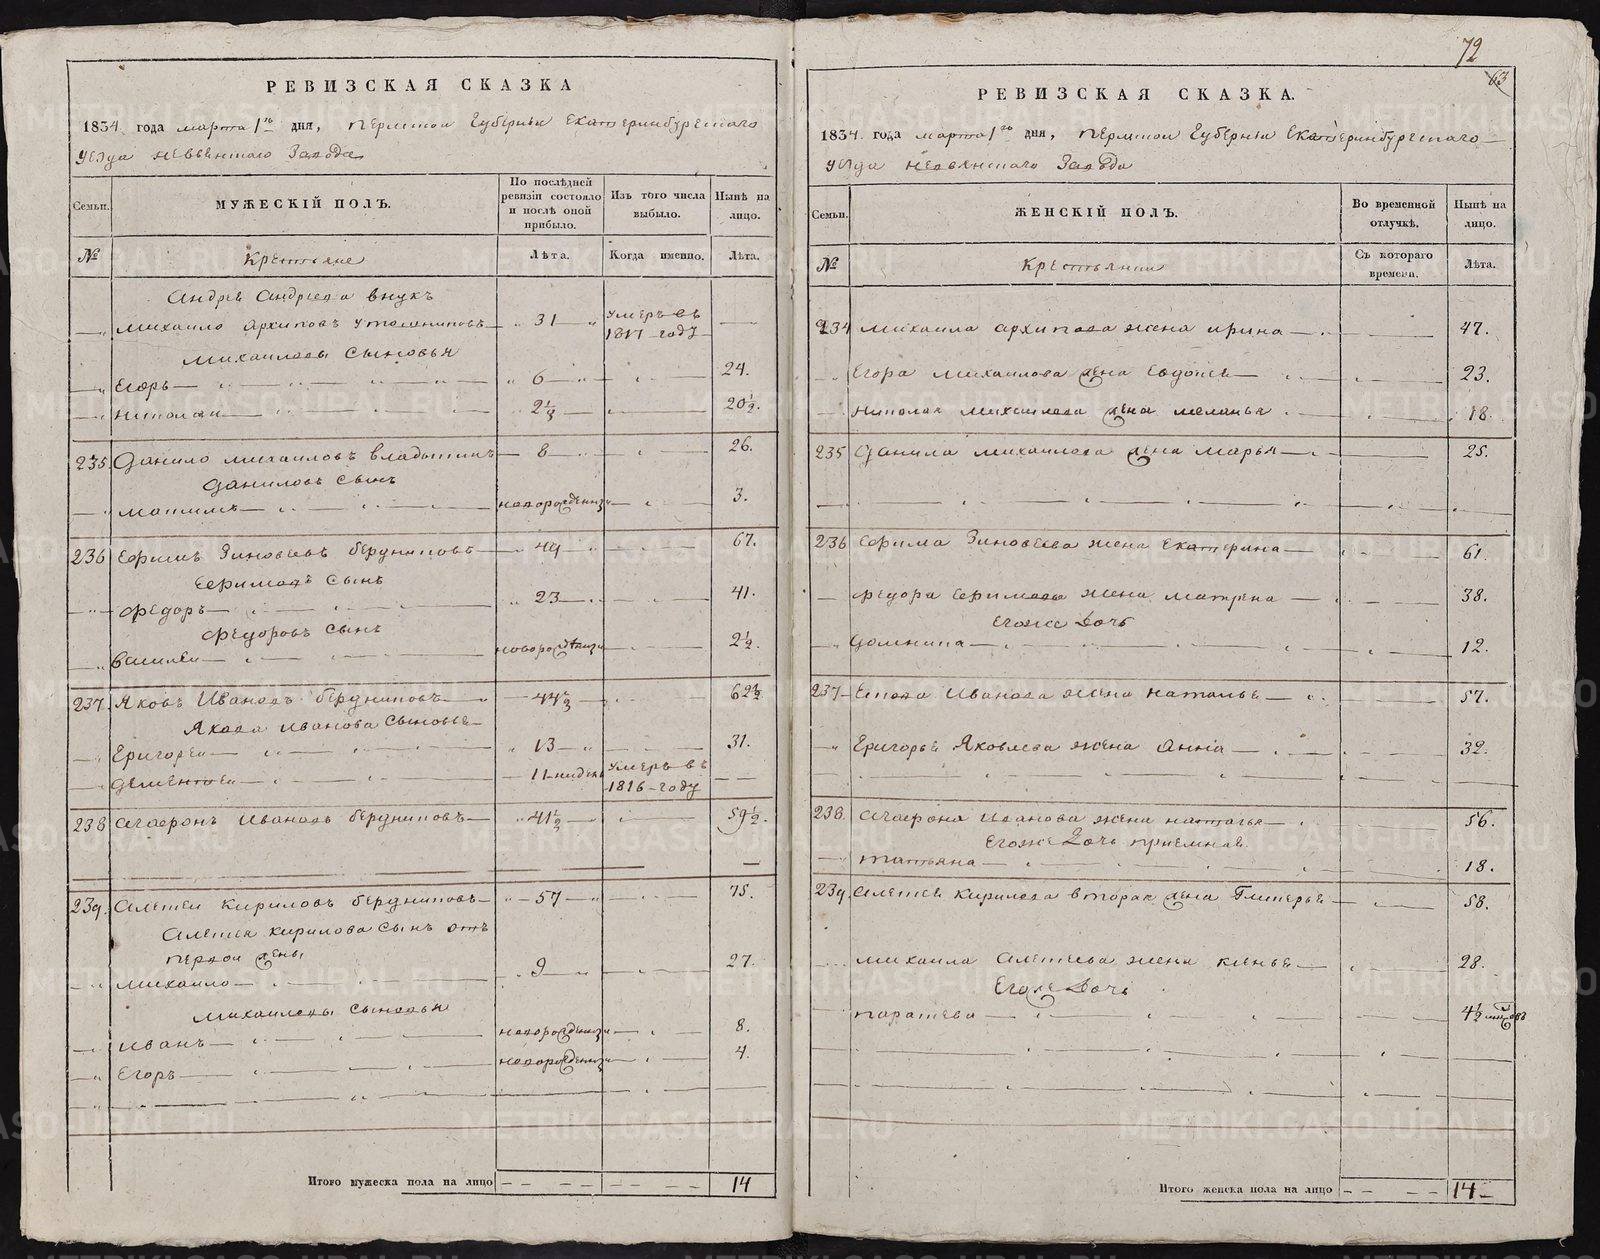 РЕВИЗСКАЯ СКАЗКА
1834 года марта 1го дня, Пермской Губернии Екатеринбургскаго
уезда Завода
Семьи.
МУЖЕСКІЙ ПОЛЪ.
По послѣдней ревизіи состояло и послѣ оной прибыло.
Изъ того числа выбыло.
Нынѣ на лицо.
№
Крестьяне
Лѣта.
Когда именно.
Лѣта.
Андрея Андреева внукъ
Михаило Архиповъ 31 умеръ въ 1817 году
Михаиловы сыновья
Егоръ 6 24.
Николаи 20½.
235 Данило Михаиловъ 8 26.
Даниловъ сынъ
новорожденъ 3.
236 Ефимъ Зиновьевъ Бердниковъ 49 67.
Ефимовъ сынъ
Федоръ 23 41.
Федоровъ сынъ
Василеи новорожденъ 2½.
237. Яковъ Ивановъ Бердниковъ 62½
Якова Иванова сыновье
Григореи 13 31.
Дементеи 11 умеръ въ 1816 году
238 Агафонъ Ивановъ Бердниковъ 41½ 59½.
239. Алексеи Кириловъ Бердниковъ 57 75.
Алексея Кирилова сынъ отъ
первои жены
Михаило 9 27.
Михаиловы сыновья
Иванъ новорожденъ 8.
Егоръ новорожденъ 4.
Итого мужеска пола на лицо 14
72
63
РЕВИЗСКАЯ СКАЗКА.
1834. года марта 1го дня, Пермской Губернии Екатеринбургскаго
уезда Завода
Семьи.
ЖЕНСКІЙ ПОЛЪ.
Во временной отлучкѣ.
Нынѣ на лицо.
№
Крестьянки
Съ котораго времени.
Лѣта.
234 Михаила Архипова жена Ирина 47.
Егора Михаилова жена 23.
Николая Михаилова жена Меланья 18.
235 Данила Михаилова жена Марья 25.
236 Ефима Зиновьева жена Екатерина 61.
Федора Ефимова жена Матрена 38.
Егоже дочь
Домнина 12.
237 Якова Иванова жена Наталье 57.
Григорья Яковлева жена Анна 32.
238. Агафона Иванова жена Наталья 56.
Егоже дочь приемная
Татьяна 18.
239. Алексея Кирилова вторая жена Гликерья 58.
Михаила Алексеева жена 28.
Егоже дочь
Парасева 4½
Итого женска пола на лицо 14
METRIKI.GASO-URAL.RU